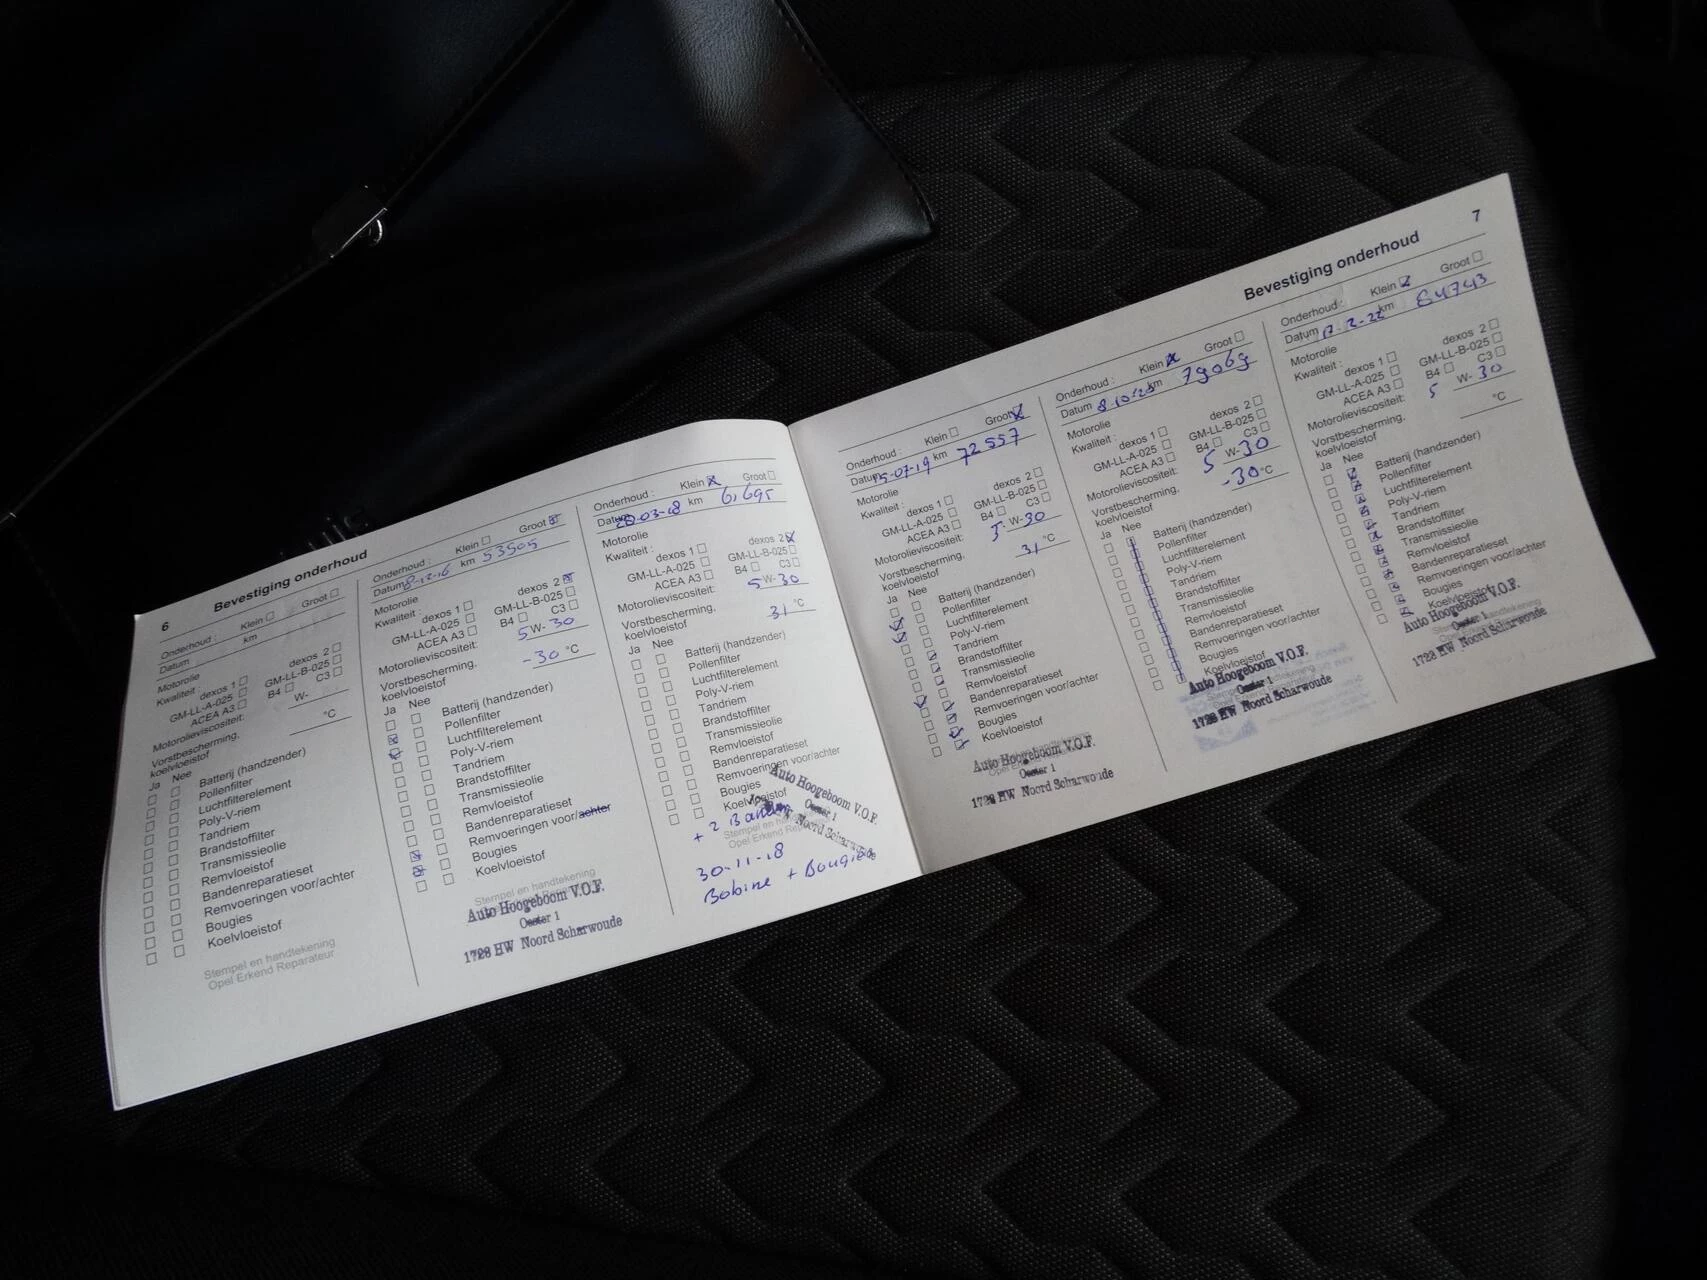 6
Bevestiging onderhoud
Onderhoud : Klein Groot
Datum km
Motorolie
Kwaliteit : dexos 1 dexos 2
GM-LL-A-025 GM-LL-B-025
ACEA A3 B4 C3
Motorolieviscositeit: W-
Vorstbescherming, °C
koelvloeistof
Ja Nee
Batterij (handzender)
Pollenfilter
Luchtfilterelement
Poly-V-riem
Tandriem
Brandstoffilter
Transmissieolie
Remvloeistof
Bandenreparatieset
Remvoeringen voor/achter
Bougies
Koelvloeistof
Stempel en handtekening
Opel Erkend Reparateur
Onderhoud : Klein Groot
Datum 8-12-16 km 53505
Motorolie
Kwaliteit : dexos 1 dexos 2
GM-LL-A-025 GM-LL-B-025
ACEA A3 B4 C3
Motorolieviscositeit: 5 W- 30
Vorstbescherming, -30 °C
koelvloeistof
Ja Nee
Batterij (handzender)
Pollenfilter
Luchtfilterelement
Poly-V-riem
Tandriem
Brandstoffilter
Transmissieolie
Remvloeistof
Bandenreparatieset
Remvoeringen voor/achter
Bougies
Koelvloeistof
Stempel en handtekening
Auto Hoogeboom V.O.F.
Oester 1
1723 HW Noord Scharwoude
Onderhoud : Klein Groot
Datum 20-03-18 km 61695
Motorolie
Kwaliteit : dexos 1 dexos 2
GM-LL-A-025 GM-LL-B-025
ACEA A3 B4 C3
Motorolieviscositeit: 5 W- 30
Vorstbescherming, 31 °C
koelvloeistof
Ja Nee
Batterij (handzender)
Pollenfilter
Luchtfilterelement
Poly-V-riem
Tandriem
Brandstoffilter
Transmissieolie
Remvloeistof
Bandenreparatieset
Remvoeringen voor/achter
Bougies
Koelvloeistof
Auto Hoogeboom V.O.F.
Oester 1
Noord Scharwoude
+ 2 Banden
Stempel en
Opel Erkend Reparateur
30-11-18
Bobine + Bougie
7
Bevestiging onderhoud
Onderhoud : Klein Groot
Datum 15-07-19 km 72557
Motorolie
Kwaliteit : dexos 1 dexos 2
GM-LL-A-025 GM-LL-B-025
ACEA A3 B4 C3
Motorolieviscositeit: 5 W- 30
Vorstbescherming, 31 °C
koelvloeistof
Ja Nee
Batterij (handzender)
Pollenfilter
Luchtfilterelement
Poly-V-riem
Tandriem
Brandstoffilter
Transmissieolie
Remvloeistof
Bandenreparatieset
Remvoeringen voor/achter
Bougies
Koelvloeistof
Auto Hoogeboom V.O.F.
Oester 1
1723 HW Noord Scharwoude
Onderhoud : Klein Groot
Datum 8-10-20 km 79069
Motorolie
Kwaliteit : dexos 1 dexos 2
GM-LL-A-025 GM-LL-B-025
ACEA A3 B4 C3
Motorolieviscositeit: 5 W- 30
Vorstbescherming, -30 °C
koelvloeistof
Ja Nee
Batterij (handzender)
Pollenfilter
Luchtfilterelement
Poly-V-riem
Tandriem
Brandstoffilter
Transmissieolie
Remvloeistof
Bandenreparatieset
Remvoeringen voor/achter
Bougies
Koelvloeistof
Auto Hoogeboom V.O.F.
Oester 1
1723 HW Noord Scharwoude
Onderhoud : Klein Groot
Datum 17-2-22 km 84743
Motorolie
Kwaliteit : dexos 1 dexos 2
GM-LL-A-025 GM-LL-B-025
ACEA A3 B4 C3
Motorolieviscositeit: 5 W- 30
Vorstbescherming, °C
koelvloeistof
Ja Nee
Batterij (handzender)
Pollenfilter
Luchtfilterelement
Poly-V-riem
Tandriem
Brandstoffilter
Transmissieolie
Remvloeistof
Bandenreparatieset
Remvoeringen voor/achter
Bougies
Koelvloeistof
Auto Hoogeboom V.O.F.
Oester 1
1723 HW Noord Scharwoude